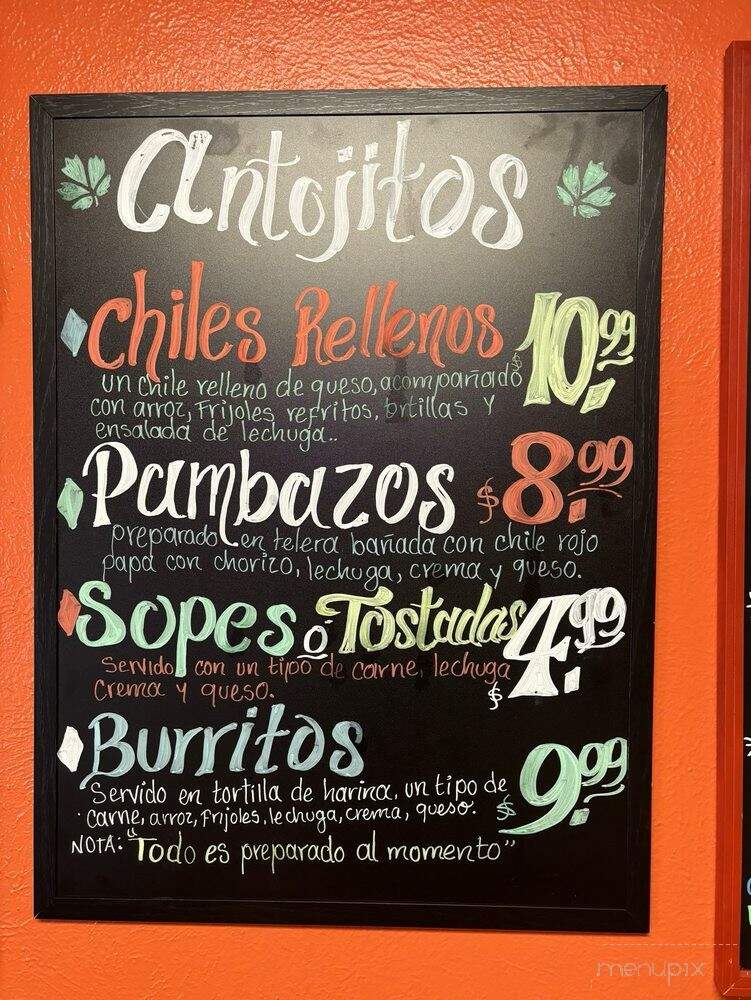 Antojitos
Chiles Rellenos $10.99
un chile relleno de queso, acompañado
con arroz, Frijoles refritos, tortillas y
ensalada de lechuga..
Pambazos $8.99
preparado en telera bañada con chile rojo
papa con chorizo, lechuga, crema y queso.
Sopes ó Tostadas $4.99
Servido con un tipo de carne, lechuga
crema y queso.
Burritos
Servido en tortilla de harina, un tipo de
carne, arroz, Frijoles, lechuga, crema, queso. $9.99
NOTA: "Todo es preparado al momento"
menupix